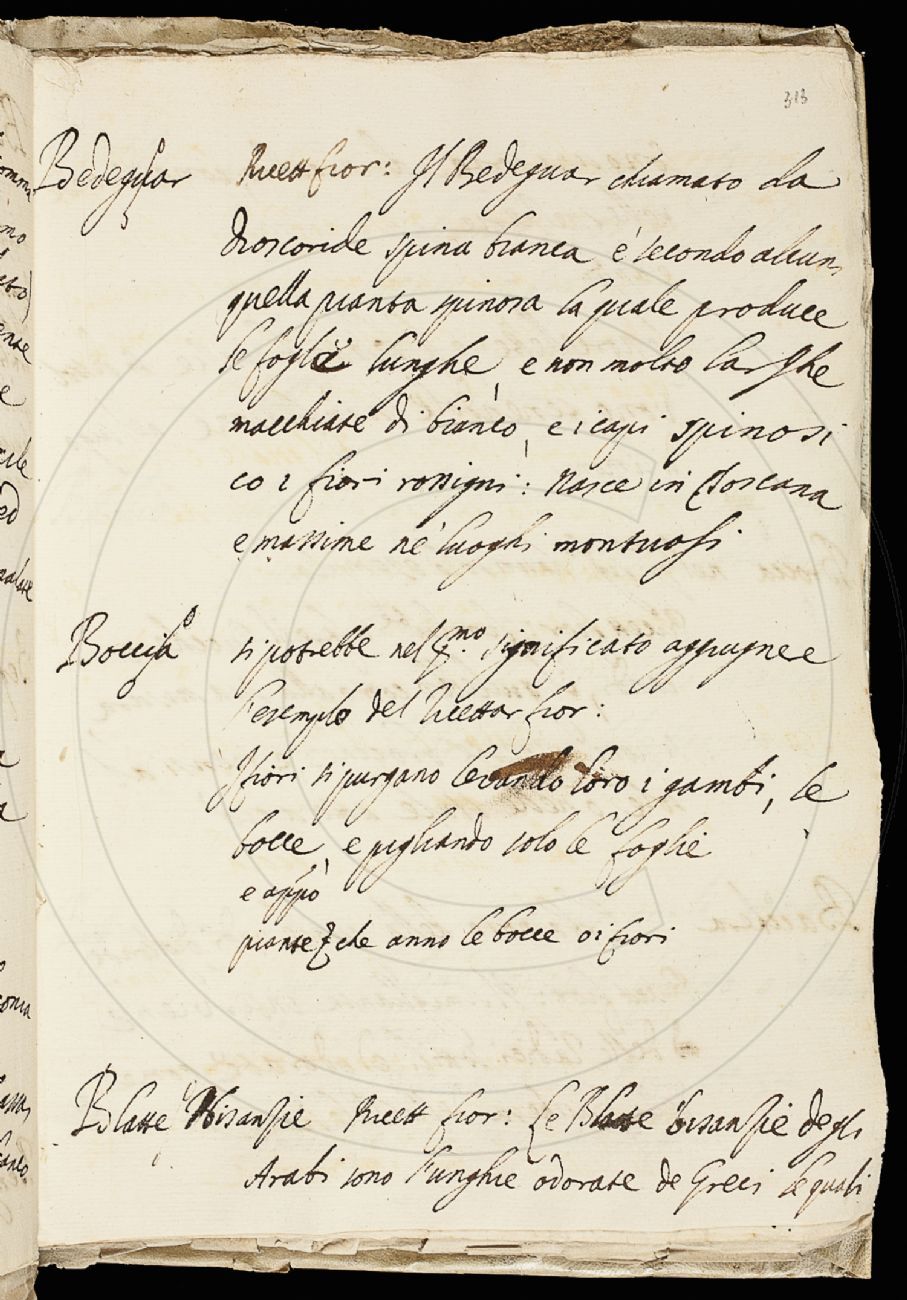 313
Bedeguar Ricett fior: Il Bedeguar chiamato da
Dioscoride spina bianca è secondo alcuni
quella pianta spinosa la quale produce
le foglie lunghe, e non molto larghe
macchiate di bianco, e i capi spinosi
co i fiori rossigni: Nasce in Toscana
e massime ne' luoghi montuosi
Boccia si potrebbe nel significato aggiugnere
l'esempio del Ricettar fior:
I fiori si purgano levando loro i gambi, le
bocce, e pigliando solo le foglie
e appò
piante che anno le bocce o i fiori
Blatte bisanzie Ricett fior: Le Blatte bisanzie degli
Arabi sono l'unghie odorate de Greci le quali